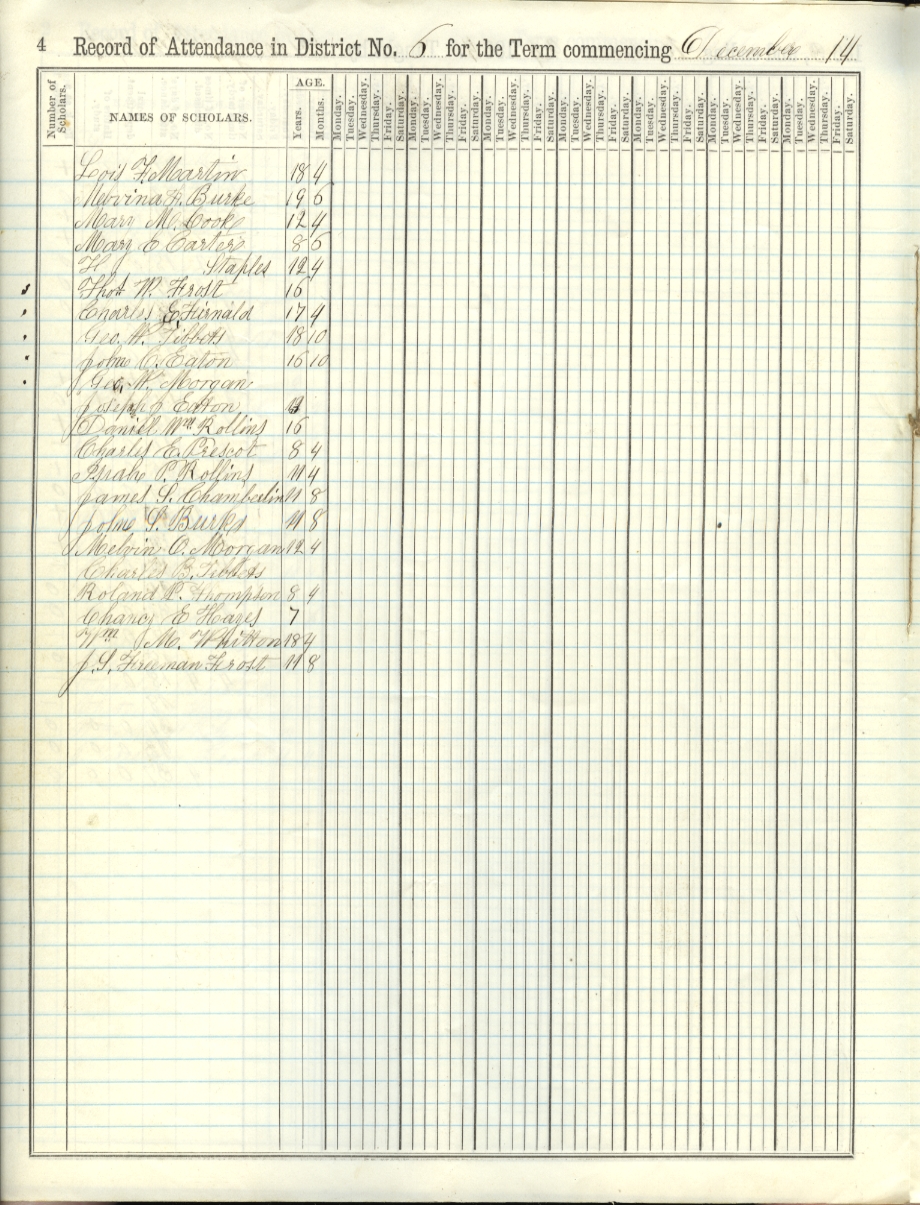 4 Record of Attendance in District No. 6 for the Term commencing December 14
Number of Scholars. NAMES OF SCHOLARS. AGE. Years. Months. Monday. Tuesday. Wednesday. Thursday. Friday. Saturday. Monday. Tuesday. Wednesday. Thursday. Friday. Saturday. Monday. Tuesday. Wednesday. Thursday. Friday. Saturday. Monday. Tuesday. Wednesday. Thursday. Friday. Saturday. Monday. Tuesday. Wednesday. Thursday. Friday. Saturday. Monday. Tuesday. Wednesday. Thursday. Friday. Saturday. Monday. Tuesday. Wednesday. Thursday. Friday. Saturday.
Lois F. Martin 18 4
Melvina F. Burke 19 6
Mary M. Cooke 12 4
Mary E Carter 8 6
H Staples 12 4
Thos W. Frost 16
Charles E. Firnald 17 4
Geo. W. Tibbets 18 10
John C. Eaton 16 10
Geo. W. Morgan
Joseph J Eaton
Daniel Wm Rollins 16
Charles E. Prescot 8 4
P. Rollins 11 4
James S. Chamberlin 11 8
John S. Burke 11 8
Melvin O. Morgan 12 4
Charles B. Tibbets
Roland P. Thompson 8 4
Chancy E Hayes 7
Wm M. Whitton 18 4
J. S. Freeman Frost 11 8